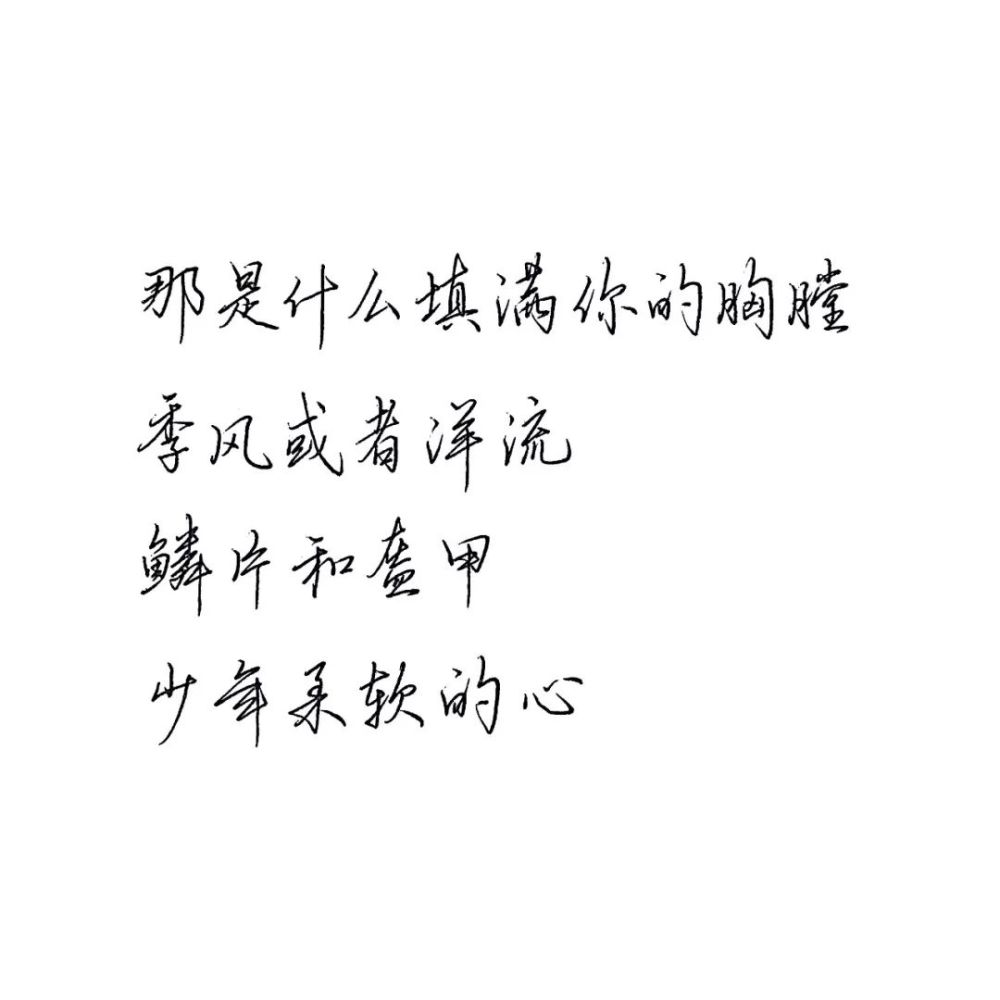 那是什么填满你的胸膛
季风或者洋流
鳞片和盔甲
少年柔软的心